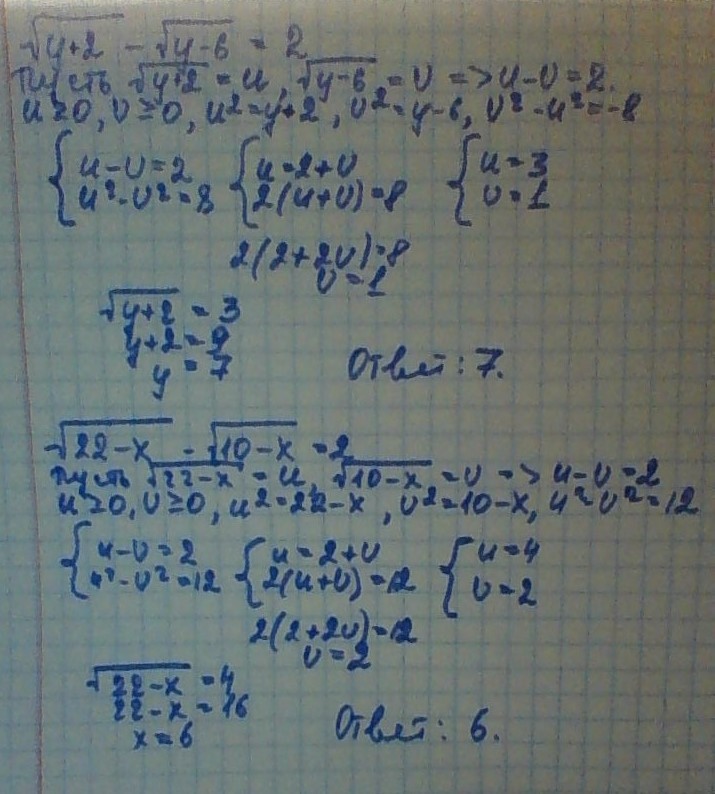 √(y+2) - √(y-6) = 2
Пусть √(y+2) = u, √(y-6) = v => u-v=2.
u≥0, v≥0, u²=y+2, v²=y-6, v²-u²=-8
{ u-v=2 { u=2+v { u=3
u²-v²=8 2(u+v)=8 v=1
2(2+2v)=8
v=1
√(y+2) = 3
y+2=9
y=7 Ответ: 7.
√(22-x) - √(10-x) = 2
Пусть √(22-x) = u, √(10-x) = v => u-v=2
u≥0, v≥0, u²=22-x, v²=10-x, u²-v²=12
{ u-v=2 { u=2+v { u=4
u²-v²=12 2(u+v)=12 v=2
2(2+2v)=12
v=2
√(22-x) = 4
22-x=16
x=6 Ответ: 6.